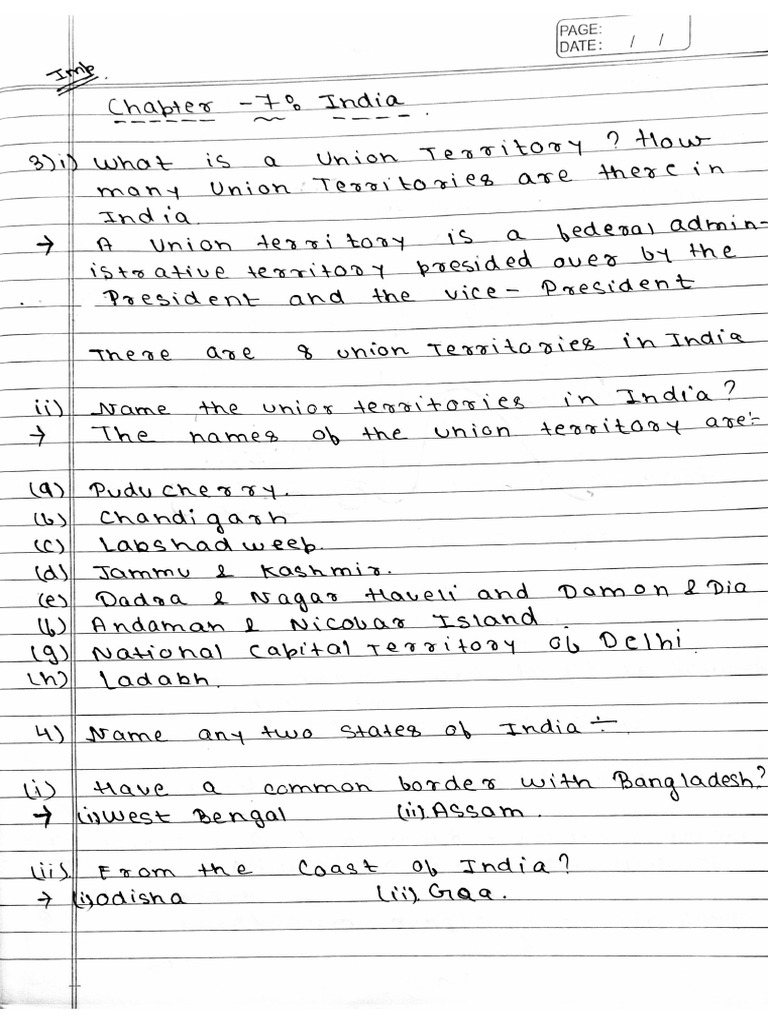 PAGE:
DATE: / /
Imp.
Chapter - 7: India.
3) i) What is a Union Territory? How
many Union Territories are there in
India.
→ A Union territory is a federal admin-
istrative territory presided over by the
President and the vice- President
There are 8 union Territories in India
ii) Name the union territories in India?
→ The names of the union territory are:-
(a) Puducherry.
(b) Chandigarh
(c) Lakshadweep.
(d) Jammu & Kashmir.
(e) Dadra & Nagar Haveli and Damon & Dia
(f) Andaman & Nicobar Island
(g) National Capital Territory of Delhi.
(h) Ladakh.
4) Name any two states of India ÷
(i) Have a common border with Bangladesh?
→ (i) West Bengal (ii) Assam.
(ii). From the Coast of India?
→ (i) Odisha (ii). Goa.